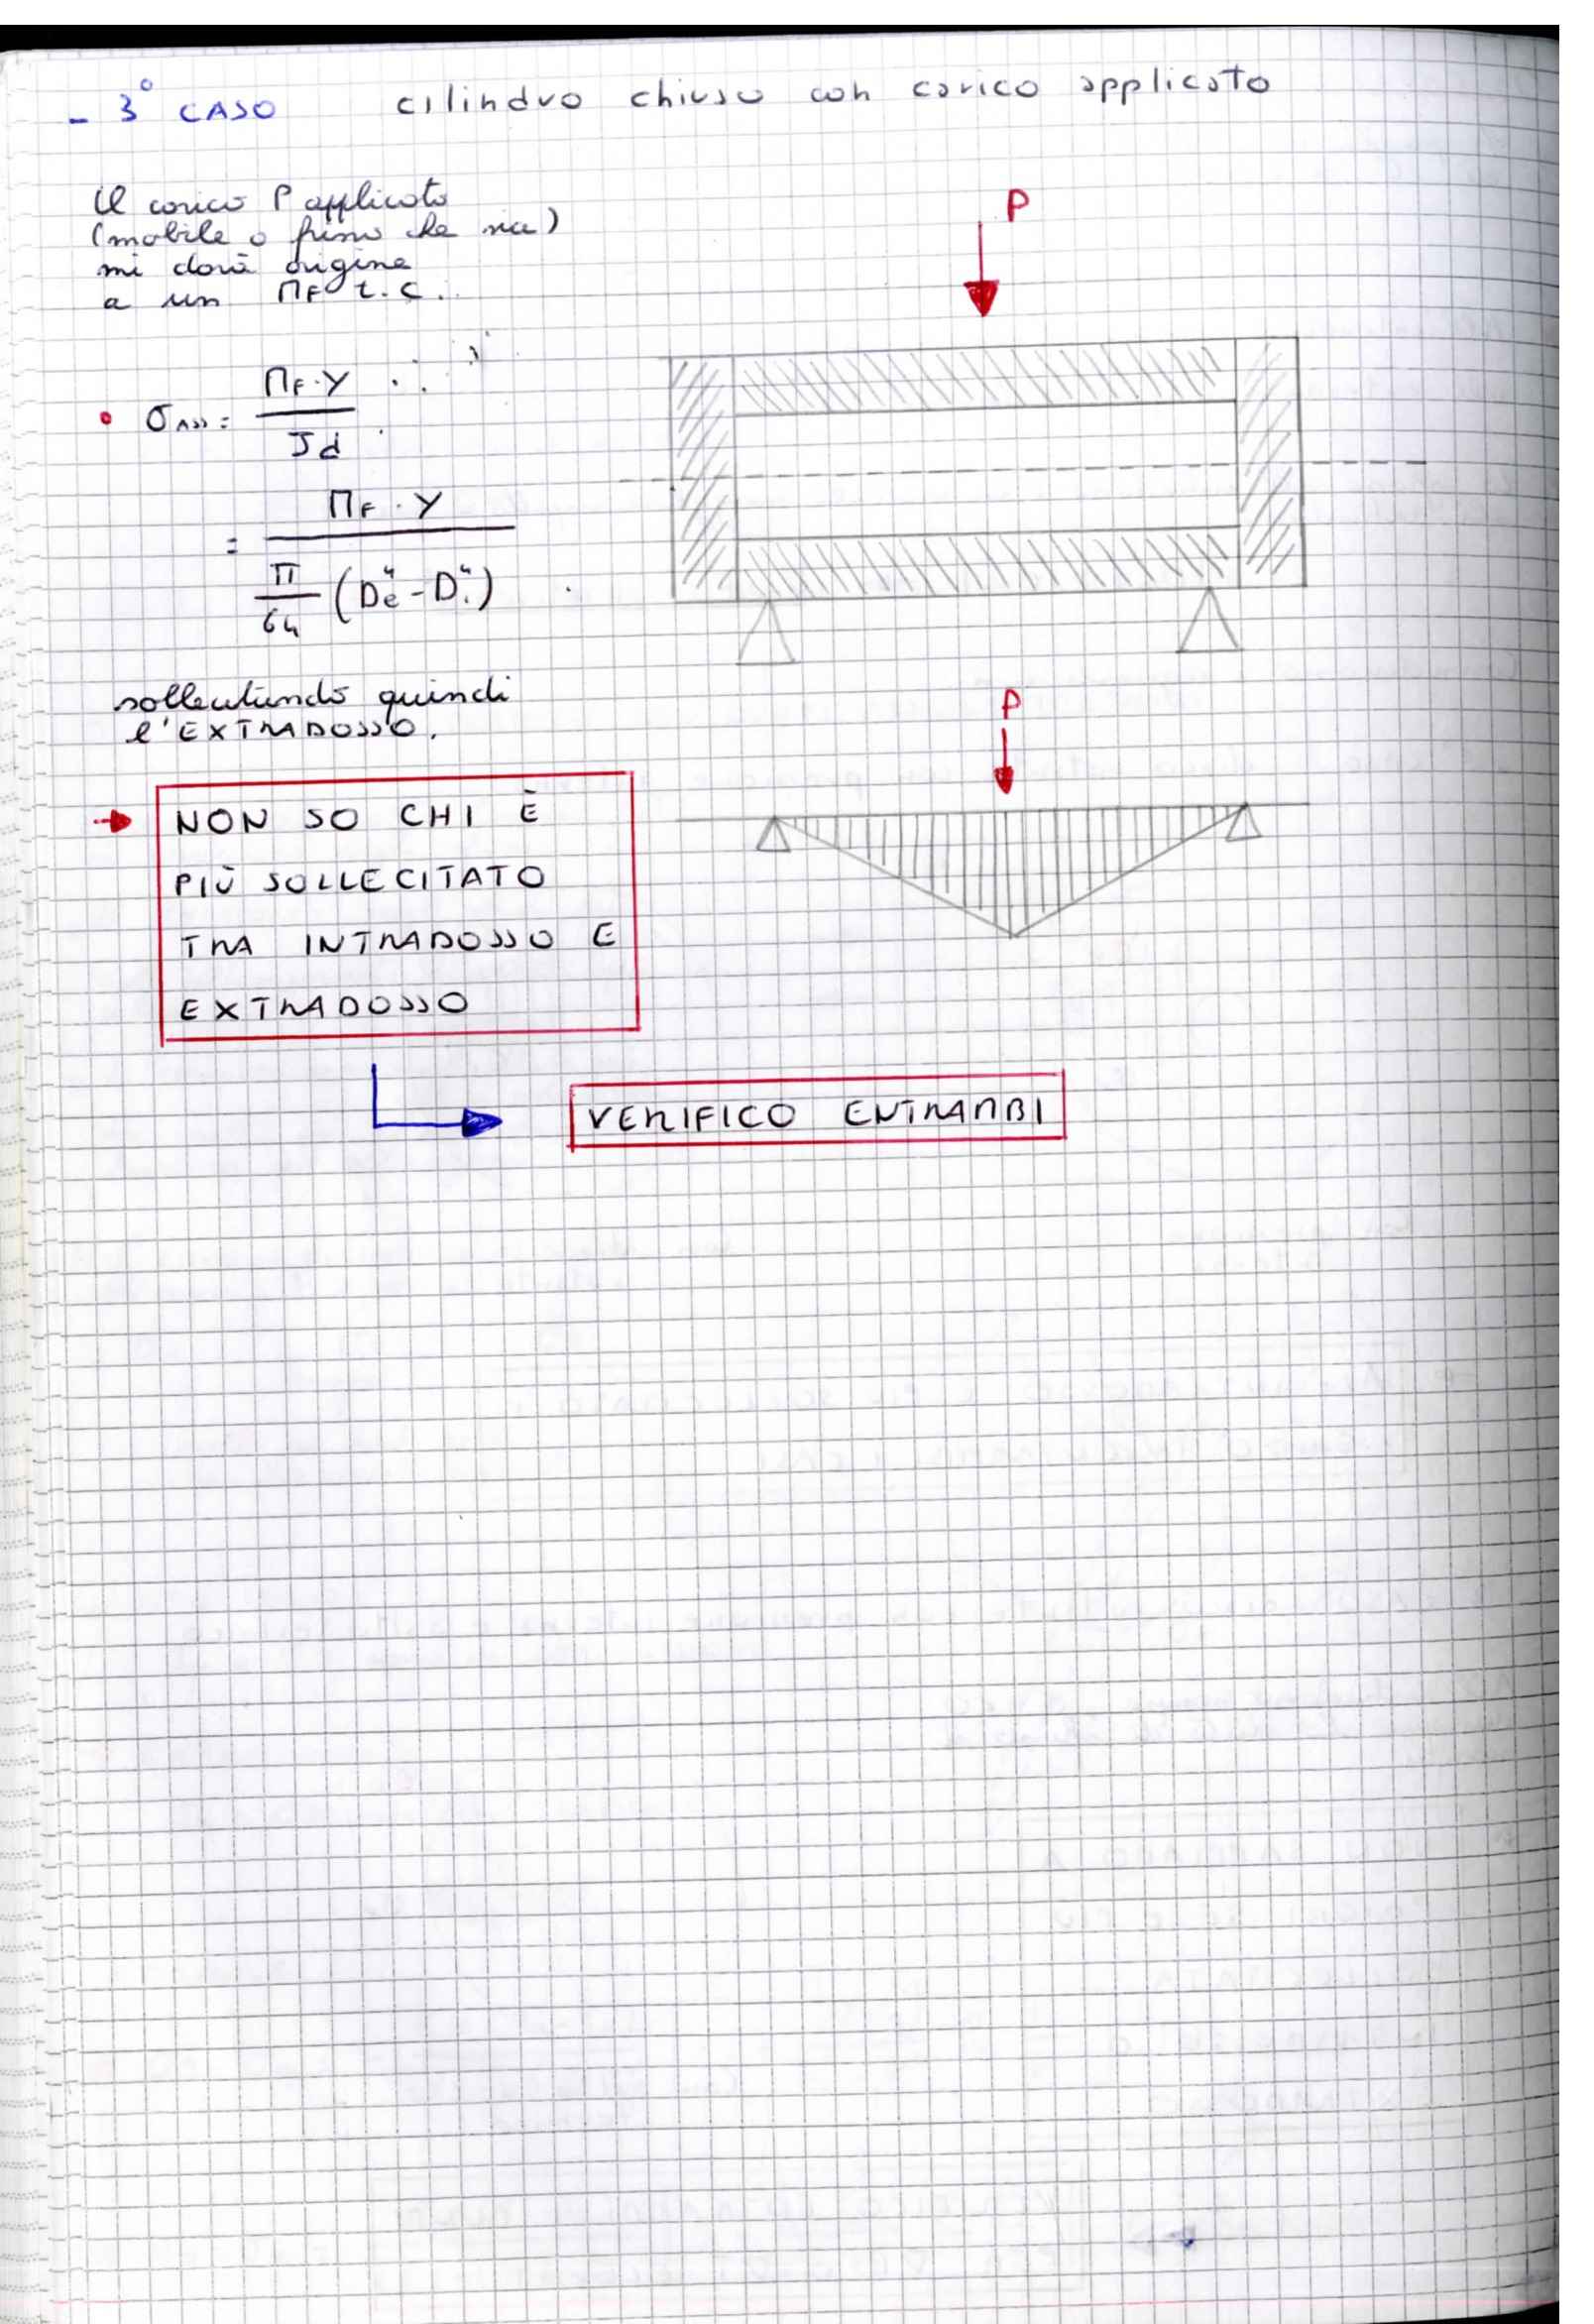 - 3° CASO cilindro chiuso con carico applicato
Il carico P applicato
(mobile o fisso che sia)
mi darà origine
a un MF t.c.
P
• σASS = MF·Y / Jd
= MF·Y / π/64 (De⁴-Di⁴)
sollecitando quindi
l'EXTRADOSSO.
P
→ NON SO CHI È
PIÙ SOLLECITATO
TRA INTRADOSSO E
EXTRADOSSO
VERIFICO ENTRAMBI